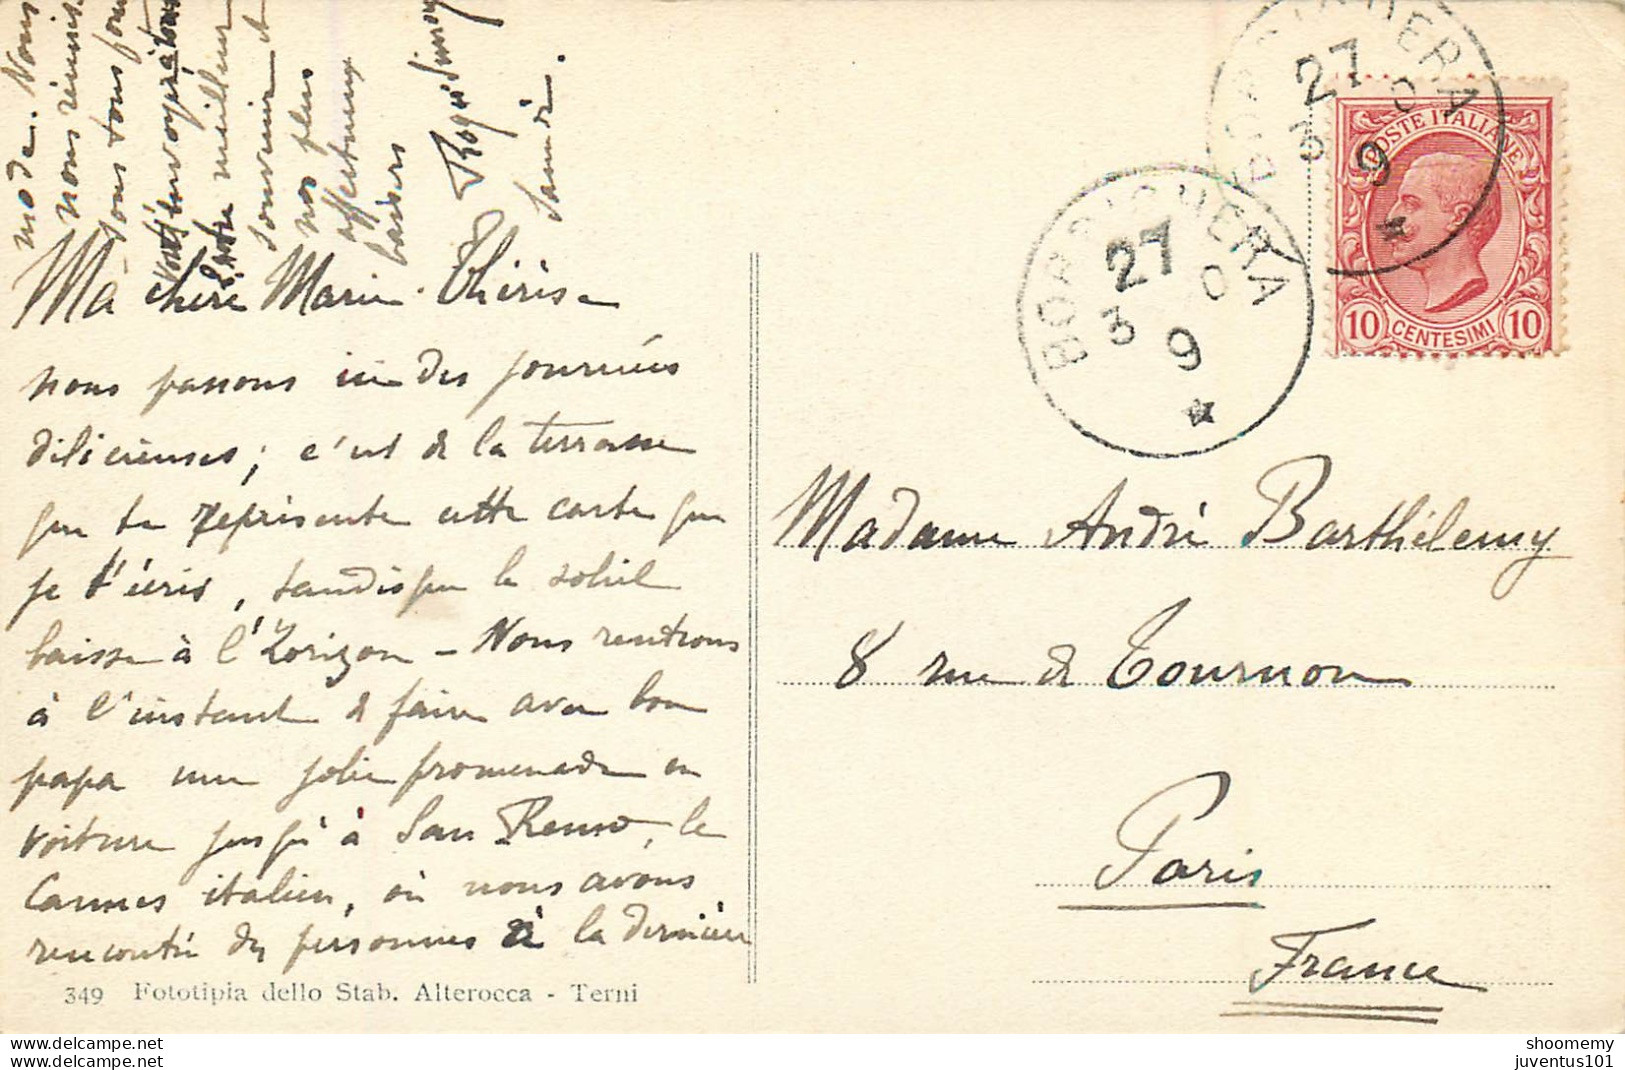 Ma chère Marie-Thérèse
nous passons ici des journées
délicieuses ; c'est de la terrasse
que te représente cette carte que
je t'écris, tandis que le soleil
baisse à l'horizon - Nous rentrons
à l'instant de faire avec bon
papa une jolie promenade en
voiture jusqu'à San Remo, le
Cannes italien, où nous avons
rencontré des personnes à la dernière
mode. Nous
nous réunis.
tous pour
t'envoyer à tous
notre meilleur
souvenir et
nos plus
affectueux
baisers
349 Fototipia dello Stab. Alterocca - Terni
BORDIGHERA
27
3 0
9
BORDIGHERA
27
3 0
9
POSTE ITALIANE
10 CENTESIMI 10
Madame André Barthélemy
8 rue de Tournon
Paris
France
www.delcampe.net
shoomemy
juventus101